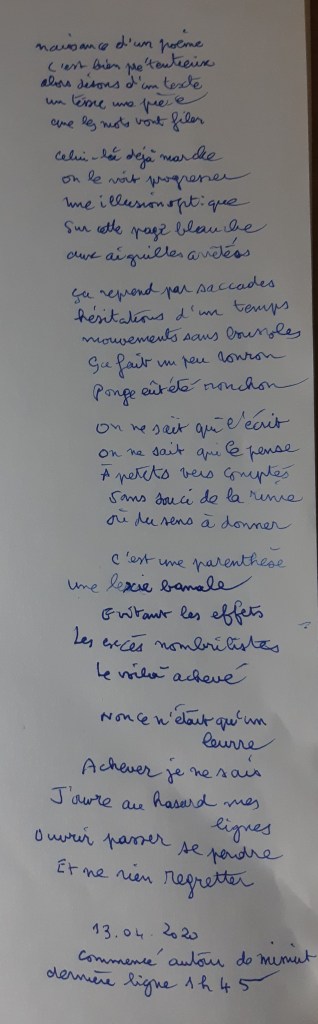 naissance d'un poème
c'est bien prétentieux
alors disons d'un texte
un tissu une pièce
que les mots vont filer
Celui-là déjà marche
on le voit progresser
une illusion optique
Sur cette page blanche
aux aiguilles arrêtées
ça reprend par saccades
hésitations d'un temps
mouvements sans boussoles
ça fait un peu ronron
Ponge eût été ronchon
On ne sait qui l'écrit
on ne sait qui le pense
À petits vers comptés
Sans souci de la rime
où du sens à donner
C'est une parenthèse
une lexie banale
Evitant les effets
Les excès nombrilistes
Le voilà achevé
Non ce n'était qu'un
leurre
Achever je ne sais
J'ouvre au hasard mes
lignes
Ouvrir passer se perdre
Et ne rien regretter
13.04.2020
commencé autour de minuit
dernière ligne 1h45